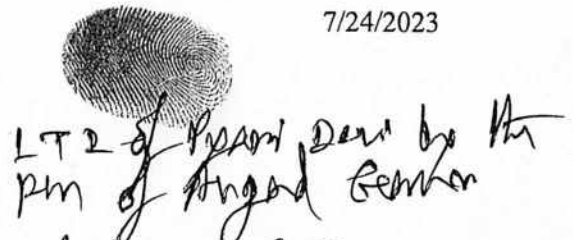 7/24/2023
LTI of Pyari Devi by the
pen of Angad